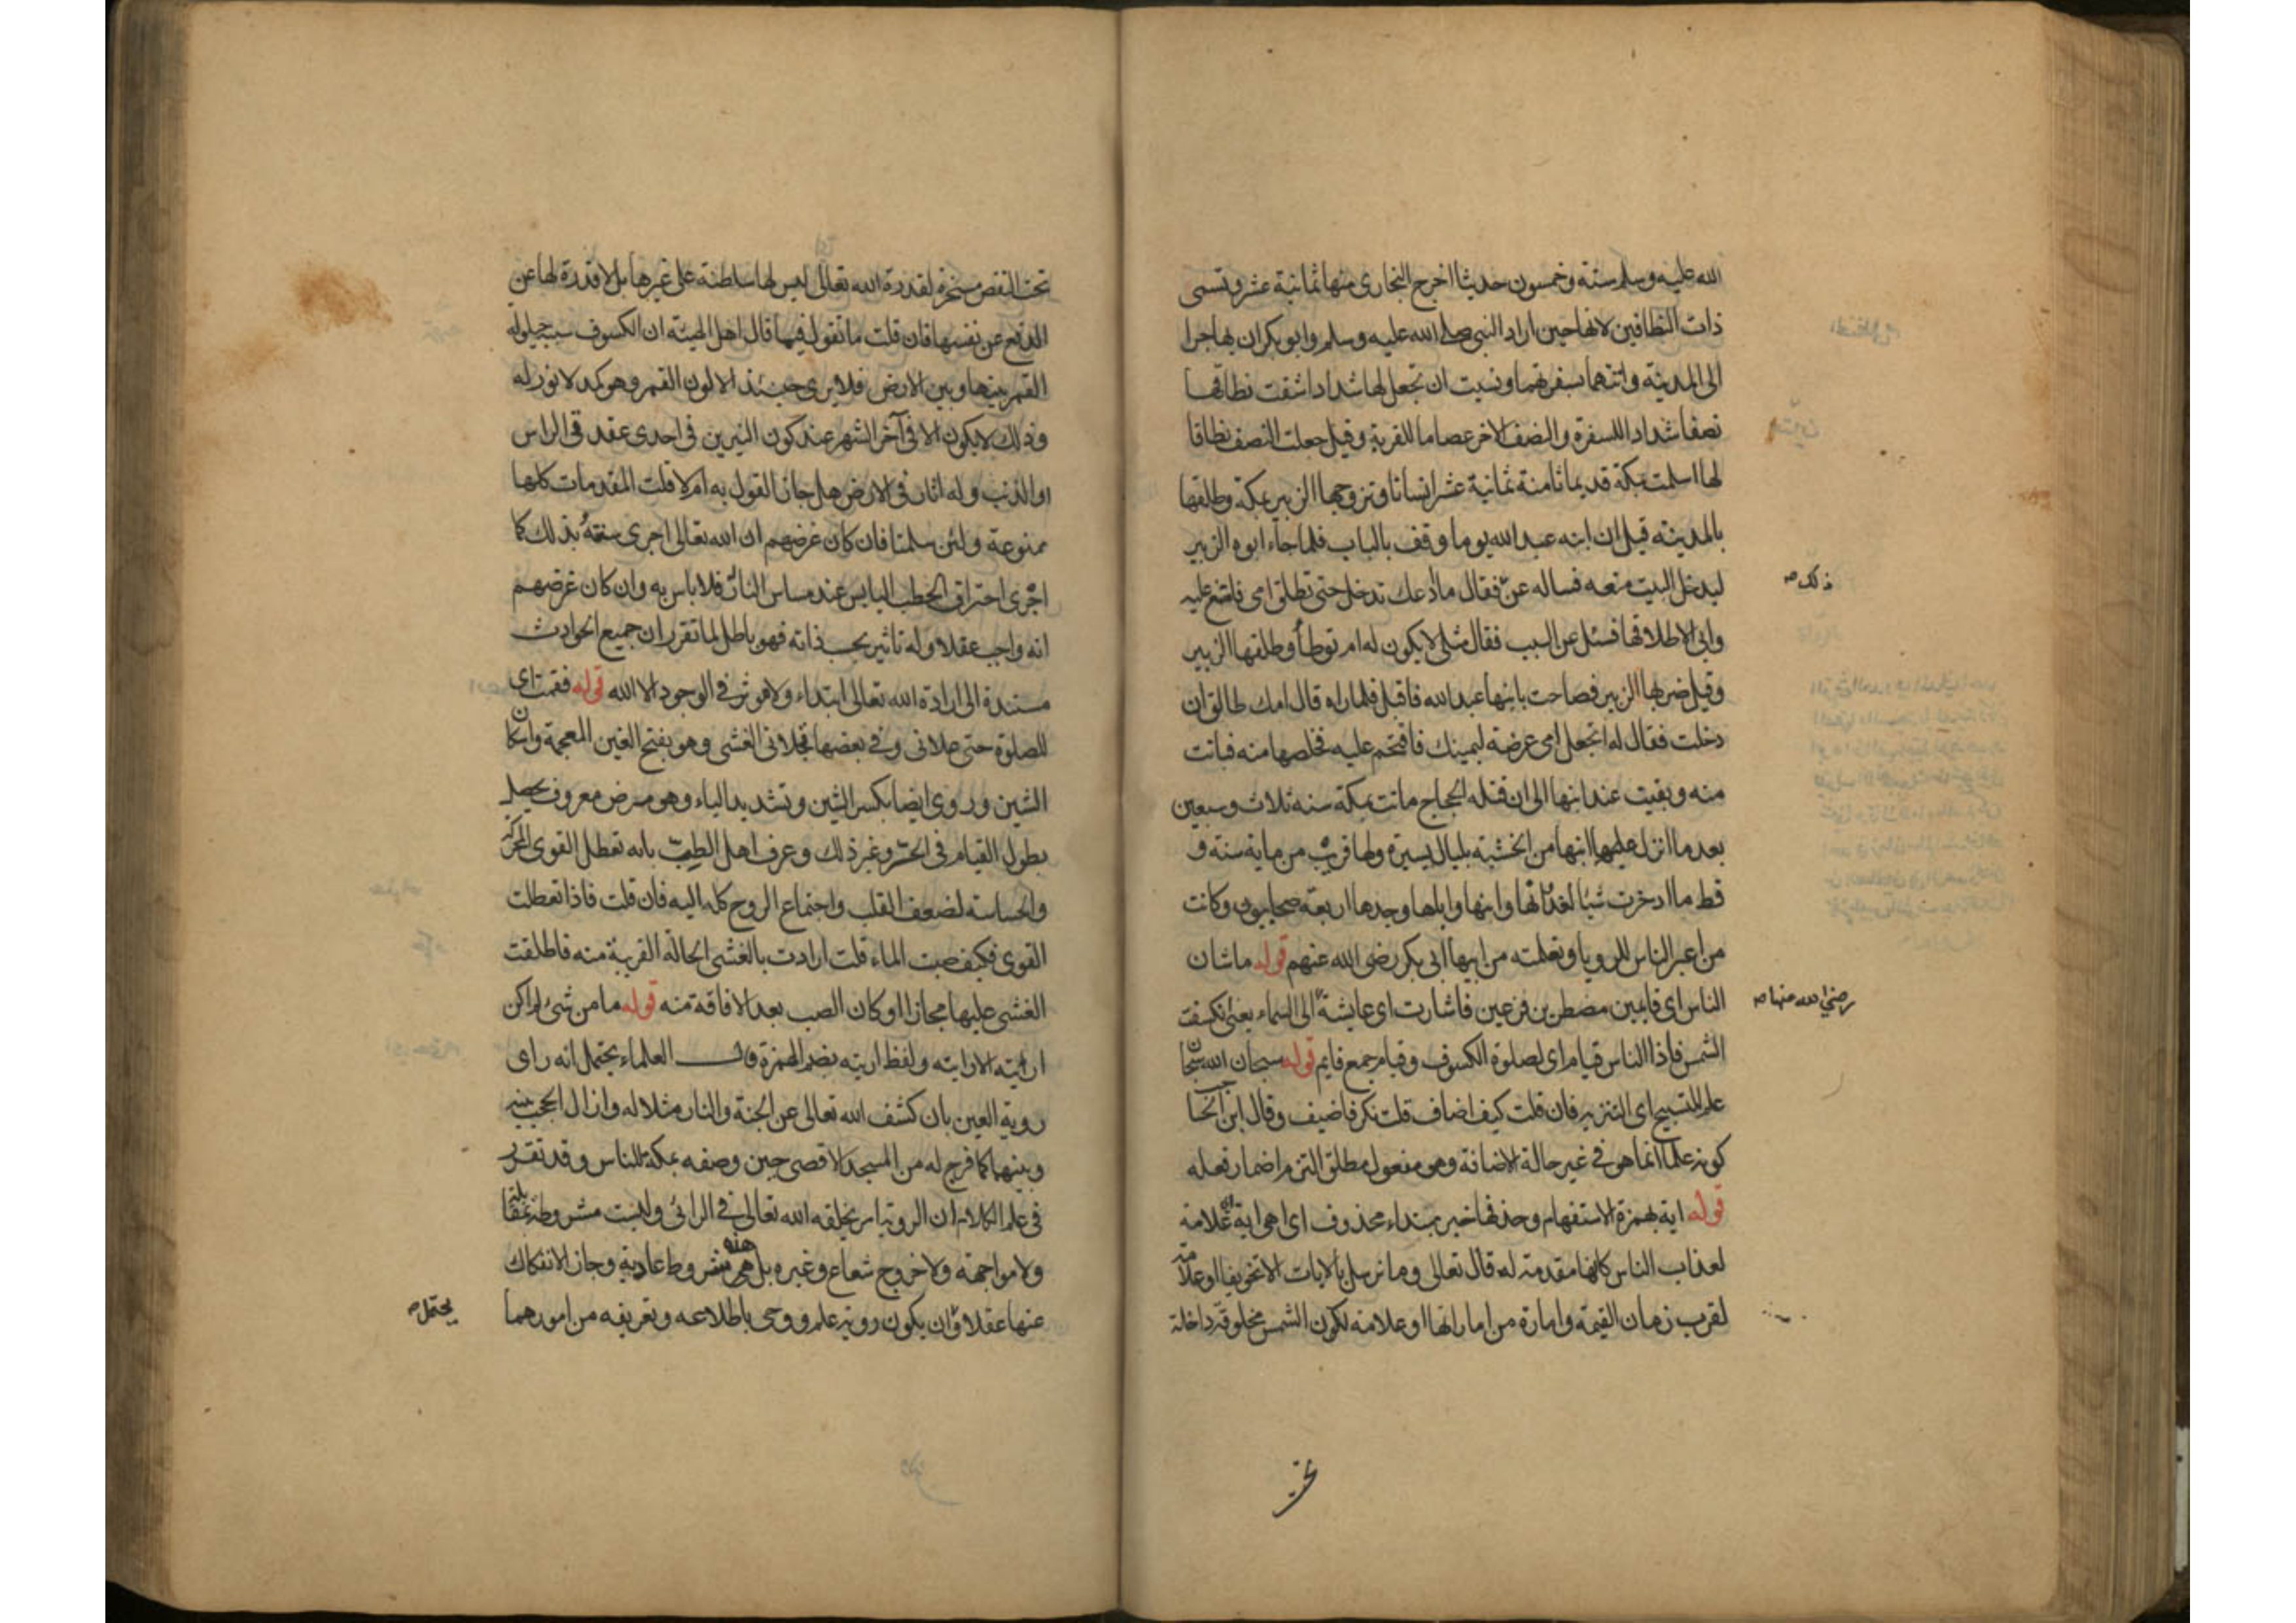 الله عليه وسلم ستة وخمسون حديثا اخرج البخارى منها ثمانية عشر وتسمى
ذات النطاقين لانها حين اراد النبى صلى الله عليه وسلم وابو بكر ان يهاجرا
الى المدينة واتتهما بسفرتهما ونسيت ان تجعل لها شدادا شقت نطاقها
نصفا شدادا للسفرة والنصف الاخر عصاما للقربة وقيل جعلت النصف نطاقا
لها اسلمت بمكة قديما ثامنة ثمانية عشر انسانا وتزوجها الزبير بمكة وطلقها
بالمدينة قيل ان ابنه عبد الله يوما وقف بالباب فلما جاء ابوه الزبير
ليدخل البيت منعه فساله عن فقال ما ادعك تدخل حتى تطلق امى فامتنع عليه
ذلك صح
وابى الا طلاقها فسئل عن السبب فقال مثلى لا يكون له ام توطأ وطلقها الزبير
وقيل ضربها الزبير فصاحت بابنها عبد الله فاقبل فلما راه قال امك طالق ان
دخلت فقال له اتجعل امى عرضة ليمينك فاقتحم عليه فخلصها منه فبانت
منه وبقيت عند ابنها الى ان قتله الحجاج ماتت بمكة سنة ثلاث وسبعين
بعد ما انزل عليها ابنها من الخشبة بليال يسيرة ولها قريب من ماية سنة و
قط ما ادخرت شيأ لغد ثانها وابنها وابلها وجدها اربعة صحابيون وكانت
من اعبر الناس للرويا وتعلمته من ابيها ابى بكر رضى الله عنهم قوله ما شان
الناس اى قايمين مضطربين فزعين فاشارت اى عايشة الى السماء يعنى انكسفت
رضى الله عنها صح
الشمس فاذا الناس قيام اى لصلوة الكسوف وقيام جمع قايم قوله سبحان الله سبحان
علم للتسبيح اى التنزيه فان قلت كيف اضاف قلت نكر فاضيف وقال ابن الحاجب
كونه علما انما هو فى غير حالة الاضافة وهو مفعول مطلق التزم اضمار فعله
قوله اية بهمزة الاستفهام وحذفها خبر مبتداء محذوف اى اهى اية اى علامة
لعذاب الناس كانها مقدمة له قال تعالى وما نرسل بالايات الا تخويفا او علامة
لقرب زمان القيمة وامارة من اماراتها او علامة لكون الشمس مخلوقة داخلة
تحت
تحت النقص مسخرة لقدرة الله تعالى ليس لها سلطنة على غيرها بل لا قدرة لها عن
الدفع عن نفسها فان قلت ما تقول فيما قال اهل الهيئة ان الكسوف سببه حيلولة
القمر بينها وبين الارض فلا يرى حينئذ الا لون القمر وهو كمد لا نور له
وذلك لا يكون الا فى آخر الشهر عند كون النيرين فى احدى عقدتى الراس
او الذنب وله اثار فى الارض هل جاز القول به ام لا قلت المقدمات كلها
ممنوعة ولئن سلمنا فان كان غرضهم ان الله تعالى اجرى سنته بذلك كما
اجرى احتراق الحطب اليابس عند مساس النار فلا باس به وان كان غرضهم
انه واجب عقلا وله تاثير بحسب ذاته فهو باطل لما تقرر ان جميع الحوادث
مستندة الى ارادة الله تعالى ابتداء ولا موثر فى الوجود الا الله قوله فقمت اى
للصلوة حتى علانى وفى بعضها تجلانى الغشى وهو بفتح الغين المعجمة واسكان
الشين وروى ايضا بكسر الشين وتشديد الياء وهو مرض معروف يحصل
بطول القيام فى الحر وغير ذلك وعرف اهل الطب بانه تعطل القوى المحركة
والحساسة لضعف القلب واجتماع الروح كله اليه فان قلت فاذا تعطلت
القوى فكيف صبت الماء قلت ارادت بالغشى الحالة القريبة منه فاطلقت
الغشى عليها مجازا او كان الصب بعد الافاقة منه قوله ما من شئ لم اكن
اريته الا رايته ولفظ اريته بضم الهمزة قال العلماء يحتمل انه راى
روية العين بان كشف الله تعالى عن الجنة والنار مثلا له وازال الحجب بينه
وبينهما كما فرج له من المسجد الاقصى حين وصفه بمكة للناس وقد تقرر
فى علم الكلام ان الروية امر يخلقه الله تعالى فى الرائى وليست مشروطة بمقابلة
ولا مواجهة ولا خروج شعاع وغيره بل هذه شروط عادية وجاز الانفكاك
عنها عقلا وان يكون روية علم ووحى باطلاعه وتعريفه من امورهما
يحتمل صح